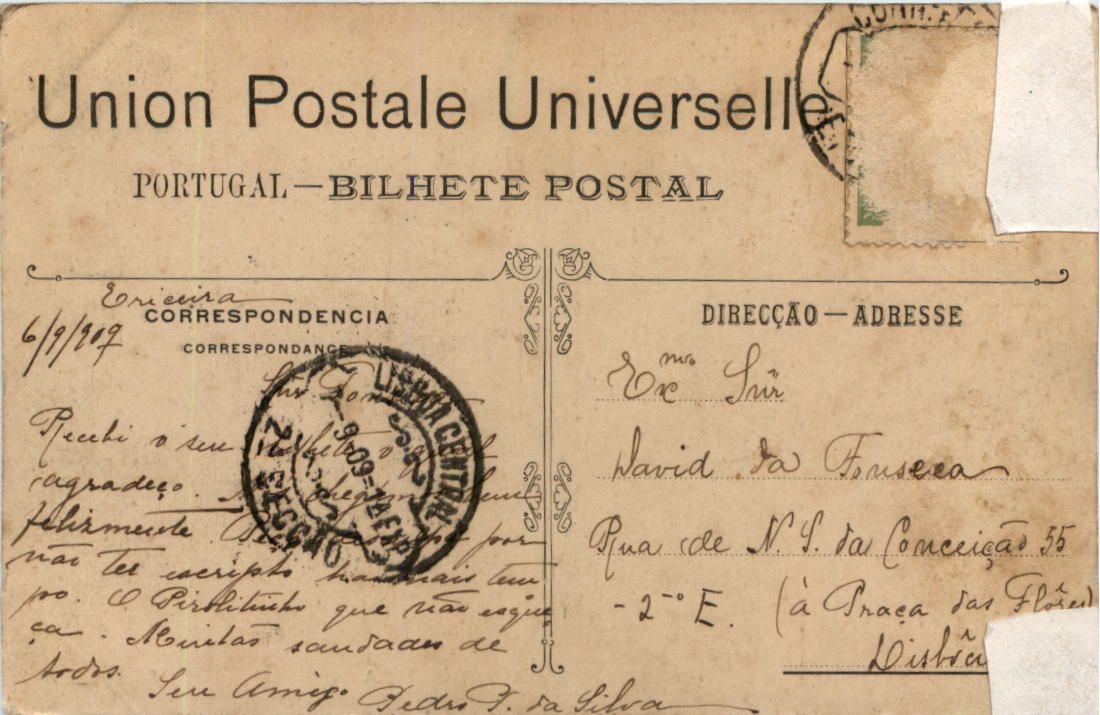 Union Postale Universelle
PORTUGAL — BILHETE POSTAL
Ericeira
CORRESPONDENCIA
6/9/909
CORRESPONDANCE
Snr Fonseca
Recebi o seu bilhete o qual
agradeço. Chegamos bem
felizmente. por
não ter escripto ha mais tem
po. O Pirolitinho que não esque
ça. Muitas saudades de
todos.
Seu Amigo Pedro P. da Silva
LISBOA CENTRAL
2ª SECCÃO
DIRECÇÃO — ADRESSE
Exmo Snr
David da Fonseca
Rua de N. S. da Conceição 55
- 2-º E. (à Praça das Flôres)
Lisbôa